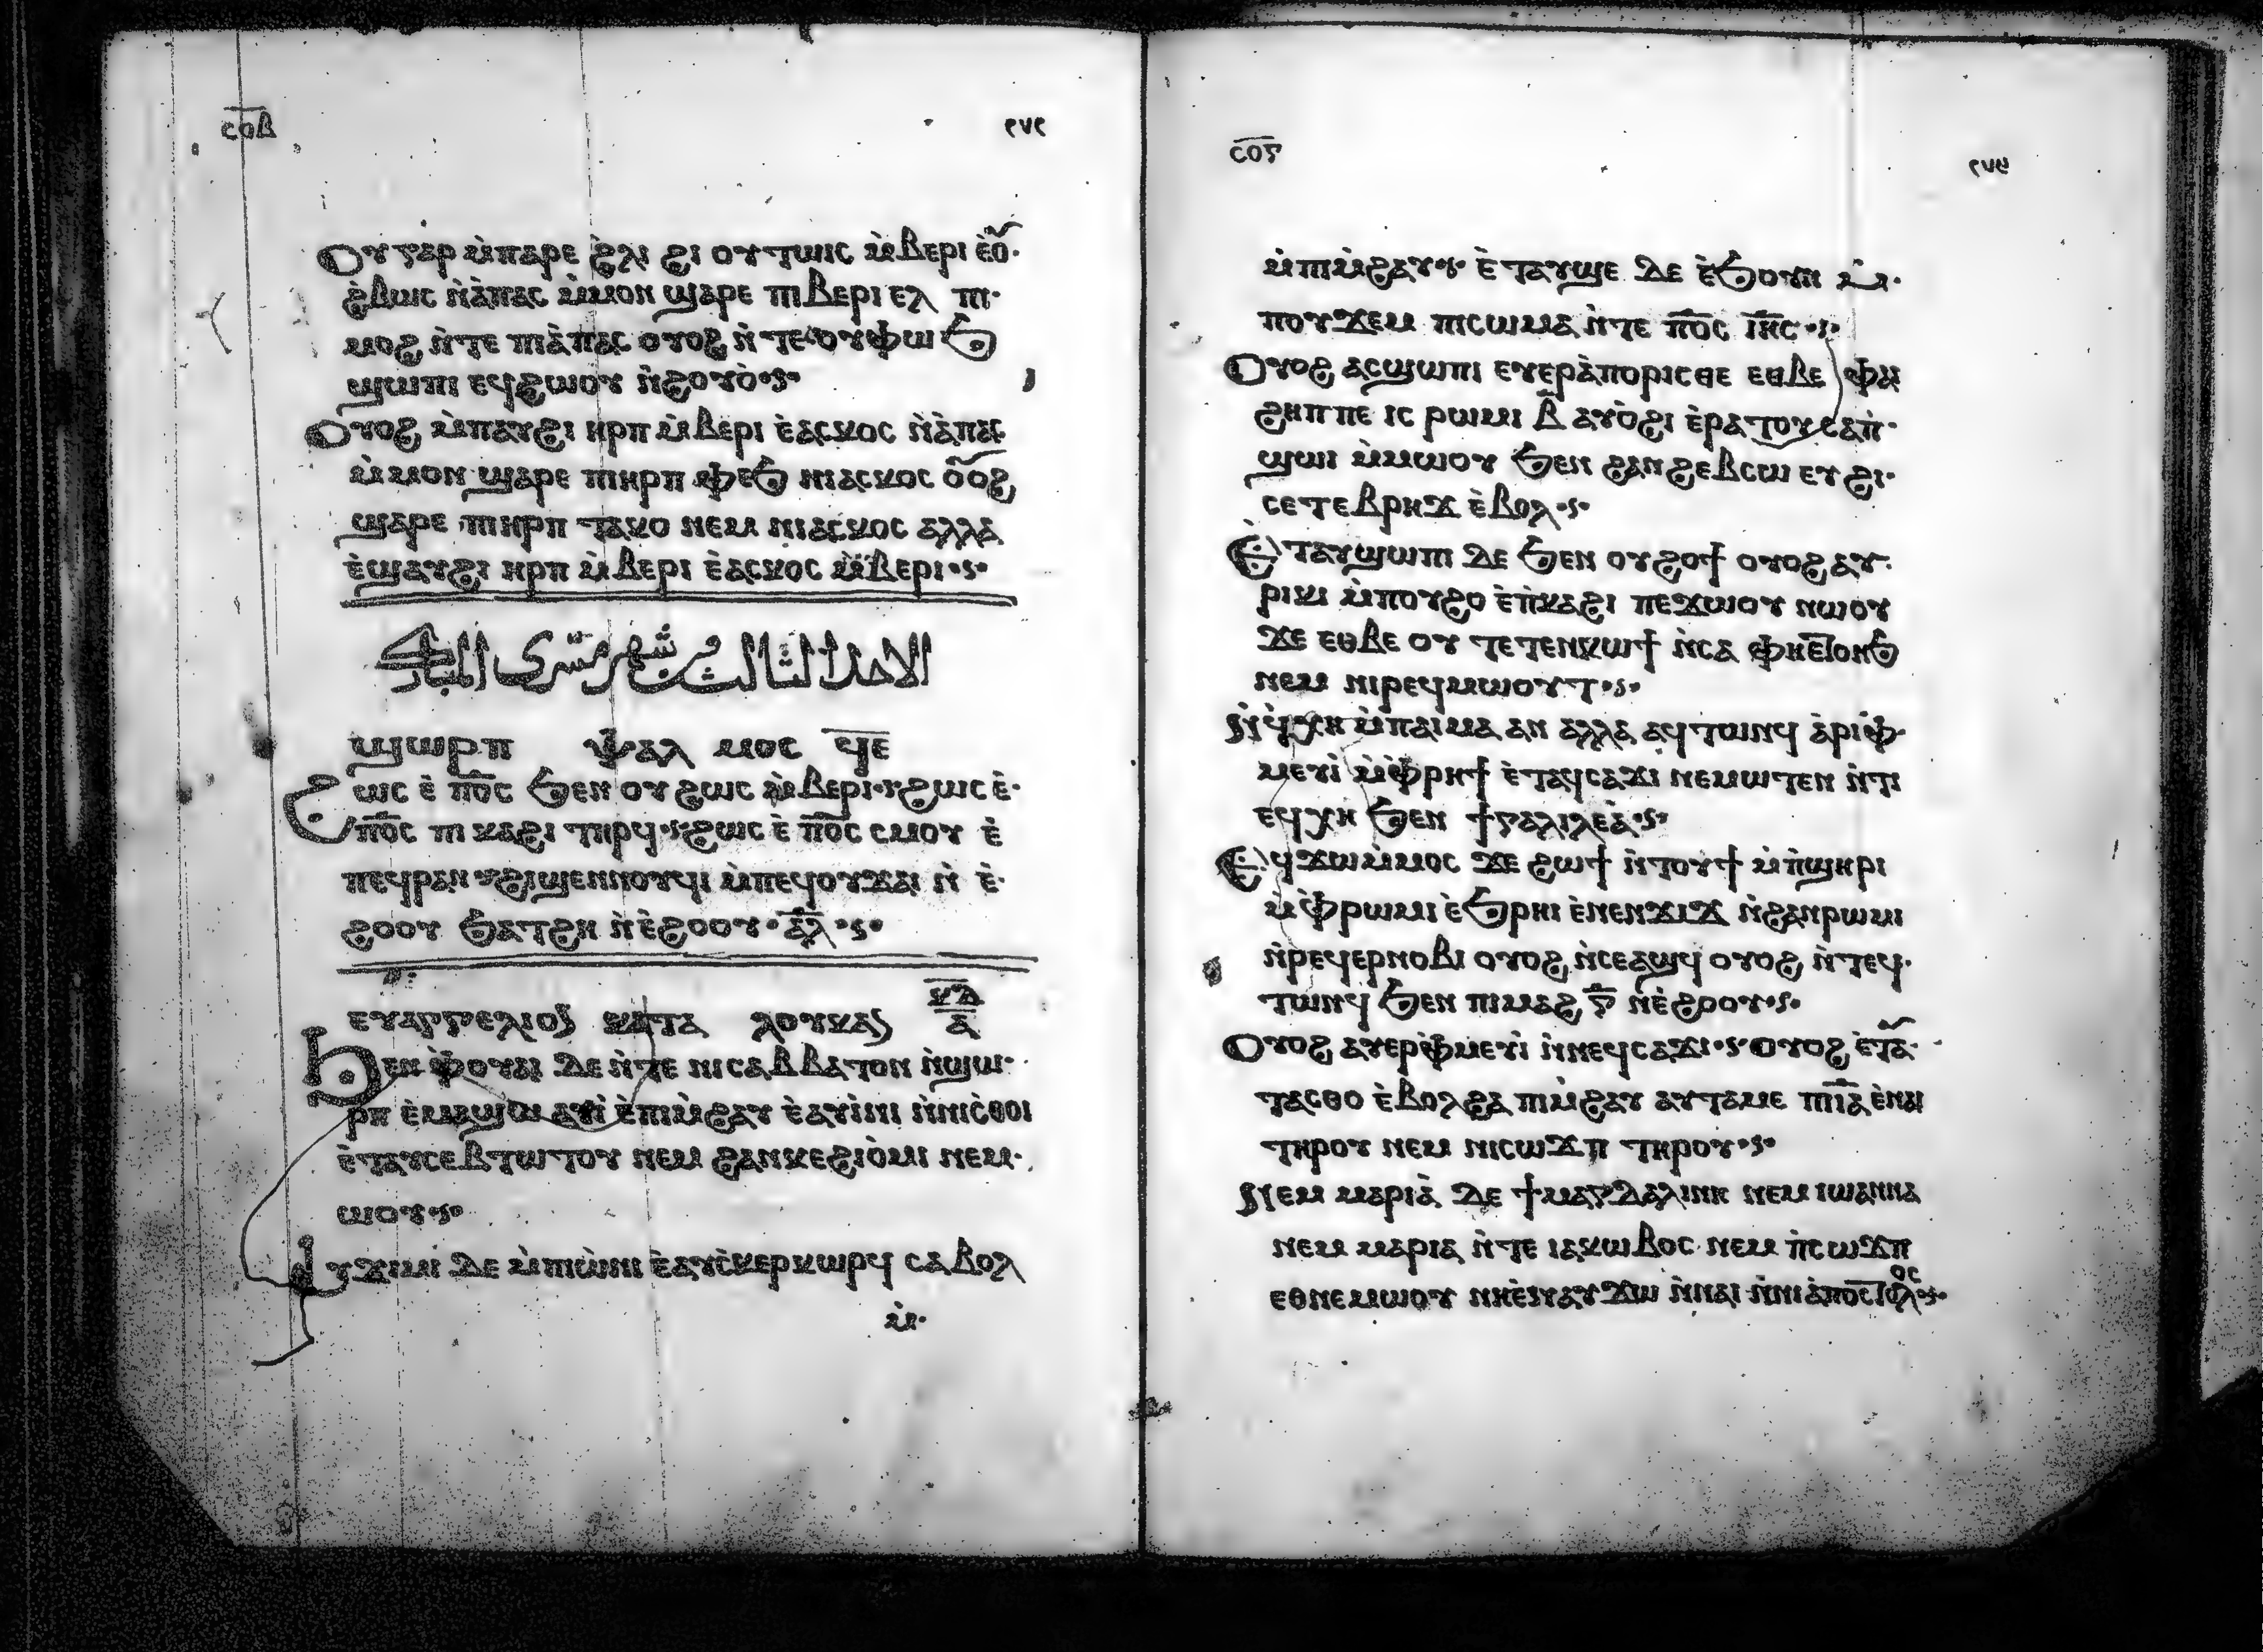 ⲥⲟⲃ ٢٧٢
ⲟⲩⲅⲁⲣ ⲙ̀ⲡⲁⲣⲉ ϩ̀ⲗⲓ ϩⲓ ⲟⲩⲧⲱⲓⲥ ⲙ̀ⲃⲉⲣⲓ ⲉ̀ⲟ̅
ϩ̀ⲃⲱⲥ ⲛ̀ⲁ̀ⲡⲁⲥ ⲙ̀ⲙⲟⲛ ϣⲁⲣⲉ ⲡⲓⲃⲉⲣⲓ ⲉⲗ ⲡⲓ·
ⲙⲟϩ ⲛ̀ⲧⲉ ⲡⲓⲁ̀ⲡⲁⲥ ⲟⲩⲟϩ ⲛ̀ⲧⲉⲟⲩⲫⲱϧ
ϣⲱⲡⲓ ⲉϥϩⲱⲟⲩ ⲛ̀ϩⲟⲩⲟ̀·ⲋ·
ⲟⲩⲟϩ ⲙ̀ⲡⲁⲩϩⲓ ⲏⲣⲡ ⲙ̀ⲃⲉⲣⲓ ⲉ̀ⲁⲥⲕⲟⲥ ⲛ̀ⲁ̀ⲡⲁⲥ
ⲙ̀ⲙⲟⲛ ϣⲁⲣⲉ ⲡⲓⲏⲣⲡ ⲫⲉϧ ⲛⲓⲁⲥⲕⲟⲥ ⲟ̅ⲟϩ
ϣⲁⲣⲉ ⲡⲓⲏⲣⲡ ⲧⲁⲕⲟ ⲛⲉⲙ ⲛⲓⲁⲥⲕⲟⲥ ⲁⲗⲗⲁ
ⲉ̀ϣⲁⲩϩⲓ ⲏⲣⲡ ⲙ̀ⲃⲉⲣⲓ ⲉ̀ⲁⲥⲕⲟⲥ ⲙ̀ⲃⲉⲣⲓ·ⲋ·
الاحد الثالث من شهر مسرى المبارك
ϣⲱⲣⲡ ⲯⲁⲗ ⲙⲟⲥ ϥ̅ⲉ̅
ϩⲱⲥ ⲉ̀ ⲡ̅ⲟ̅ⲥ̅ ϧⲉⲛ ⲟⲩϩⲱⲥ ⲙ̀ⲃⲉⲣⲓ·ⲋϩⲱⲥ ⲉ̀·
ⲡ̅ⲟ̅ⲥ̅ ⲡⲓⲕⲁϩⲓ ⲧⲏⲣϥ·ⲋϩⲱⲥ ⲉ̀ ⲡ̅ⲟ̅ⲥ̅ ⲥⲙⲟⲩ ⲉ̀
ⲡⲉϥⲣⲁⲛ·ⲋϩⲓϣⲉⲛⲛⲟⲩϥⲓ ⲙ̀ⲡⲉϥⲟⲩϫⲁⲓ ⲛ̀ ⲉ̀·
ϩⲟⲟⲩ ϧⲁⲧϩⲏ ⲛ̀ⲉ̀ϩⲟⲟⲩ·ⲁ̅ⲗ̅·ⲋ·
ⲉⲩⲁⲅⲅⲉⲗⲓⲟⲛ ⲕⲁⲧⲁ ⲗⲟⲩⲕⲁⲛ ⲕ̅ⲇ̅ ⲁ̅
ϧⲉⲛ ⲫ̀ⲟⲩⲁⲓ ⲇⲉ ⲛ̀ⲧⲉ ⲛⲓⲥⲁⲃⲃⲁⲧⲟⲛ ⲛ̀ϣⲱ·
ⲣⲡ ⲉ̀ⲙⲁϣⲱ ⲁⲩⲓ̀ ⲉ̀ⲡⲓⲙ̀ϩⲁⲩ ⲉ̀ⲁⲩⲓ̀ⲛⲓ ⲛ̀ⲛⲓⲥ̀ⲑⲟⲓ
ⲉ̀ⲧⲁⲩⲥⲉⲃⲧⲱⲧⲟⲩ ⲛⲉⲙ ϩⲁⲛⲕⲉϩⲓⲟ̀ⲙⲓ ⲛⲉⲙ·
ⲱⲟⲩ·ⲋ·
ⲁⲩϫⲓⲙⲓ ⲇⲉ ⲙ̀ⲡⲓⲱ̀ⲛⲓ ⲉ̀ⲁⲩⲥ̀ⲕⲉⲣⲕⲱⲣϥ ⲥⲁⲃⲟⲗ
ⲙ̀·
ⲥⲟⲅ ٢٧٣
ⲙ̀ⲡⲓⲙ̀ϩⲁⲩ·ⲋ· ⲉ̀ⲧⲁⲩϣⲉ ⲇⲉ ⲉ̀ϧⲟⲩⲛ ⲙ̀·
ⲡⲟⲩϫⲉⲙ ⲡⲓⲥⲱⲙⲁ ⲛ̀ⲧⲉ ⲡ̅ⲟ̅ⲥ̅ ⲓ̅ⲏ̅ⲥ̅·ⲋ·
ⲟⲩⲟϩ ⲁⲥϣⲱⲡⲓ ⲉⲩⲉⲣⲁ̀ⲡⲟⲣⲓⲥⲑⲉ ⲉⲑⲃⲉ ⲫⲁⲓ
ϩⲏⲡⲡⲉ ⲓⲥ ⲣⲱⲙⲓ ⲃ̅ ⲁⲩⲟ̀ϩⲓ ⲉ̀ⲣⲁⲧⲟⲩ ⲥⲁⲡ̀·
ϣⲱⲓ ⲙ̀ⲙⲱⲟⲩ ϧⲉⲛ ϩⲁⲛϩⲉⲃⲥⲱ ⲉⲩϩⲓ·
ⲥⲉⲧⲉⲃⲣⲏϫ ⲉ̀ⲃⲟⲗ·ⲋ·
ⲉ̀ⲧⲁⲩϣⲱⲡⲓ ⲇⲉ ϧⲉⲛ ⲟⲩϩⲟϯ ⲟⲩⲟϩ ⲁⲩ·
ⲣⲓⲕⲓ ⲙ̀ⲡⲟⲩϩⲟ ⲉ̀ⲡ̀ⲕⲁϩⲓ ⲡⲉϫⲱⲟⲩ ⲛⲱⲟⲩ
ϫⲉ ⲉⲑⲃⲉ ⲟⲩ ⲧⲉⲧⲉⲛⲕⲱϯ ⲛ̀ⲥⲁ ⲫⲏⲉⲧⲟⲛϧ
ⲛⲉⲙ ⲛⲓⲣⲉϥⲙⲱⲟⲩⲧ·ⲋ·
ⲛϥ̀ⲭⲏ ⲙ̀ⲡⲁⲓⲙⲁ ⲁⲛ ⲁⲗⲗⲁ ⲁϥⲧⲱⲛϥ ⲁ̀ⲣⲓⲫ̀·
ⲙⲉⲩⲓ̀ ⲙ̀ⲫ̀ⲣⲏϯ ⲉ̀ⲧⲁϥⲥⲁϫⲓ ⲛⲉⲙⲱⲧⲉⲛ ⲛ̀ⲧⲓ
ⲉϥⲭⲏ ϧⲉⲛ ϯⲅⲁⲗⲓⲗⲉⲁ̀·ⲋ·
ⲉϥϫⲱⲙ̀ⲙⲟⲥ ϫⲉ ϩⲱϯ ⲛ̀ⲧⲟⲩϯ ⲙ̀ⲡ̀ϣⲏⲣⲓ
ⲙ̀ⲫ̀ⲣⲱⲙⲓ ⲉ̀ϧⲣⲏⲓ ⲉ̀ⲛⲉⲛϫⲓϫ ⲛ̀ϩⲁⲛⲣⲱⲙⲓ
ⲛ̀ⲣⲉϥⲉⲣⲛⲟⲃⲓ ⲟⲩⲟϩ ⲛ̀ⲥⲉⲁϣϥ ⲟⲩⲟϩ ⲛ̀ⲧⲉϥ·
ⲧⲱⲛϥ ϧⲉⲛ ⲡⲓⲙⲁϩ ⲅ̅ ⲛ̀ⲉ̀ϩⲟⲟⲩ·ⲋ·
ⲟⲩⲟϩ ⲁⲩⲉⲣⲫ̀ⲙⲉⲩⲓ̀ ⲛ̀ⲛⲉϥⲥⲁϫⲓ·ⲋ·ⲟⲩⲟϩ ⲉ̀ⲧⲁ̅·
ⲧⲁⲥⲑⲟ ⲉ̀ⲃⲟⲗϩⲁ ⲡⲓⲙ̀ϩⲁⲩ ⲁⲩⲧⲁⲙⲉ ⲡⲓⲓ̅ⲁ̅ ⲉ̀ⲛⲁⲓ
ⲧⲏⲣⲟⲩ ⲛⲉⲙ ⲛⲓⲥⲱϫⲡ ⲧⲏⲣⲟⲩ·ⲋ·
ⲛⲉⲙ ⲙⲁⲣⲓⲁ̀ ⲇⲉ ϯⲙⲁⲅⲇⲁⲗⲓⲛⲏ ⲛⲉⲙ ⲓⲱⲁⲛⲛⲁ
ⲛⲉⲙ ⲙⲁⲣⲓⲁ ⲛ̀ⲧⲉ ⲓⲁⲕⲱⲃⲟⲥ ⲛⲉⲙ ⲡ̀ⲥⲱϫⲡ
ⲉⲑⲛⲉⲙⲱⲟⲩ ⲛⲏⲉ̀ⲛⲁⲩϫⲱ ⲛ̀ⲛⲁⲓ ⲛ̀ⲛⲓⲁ̀ⲡⲟⲥⲧⲟⲗⲟⲥ·ⲋ·